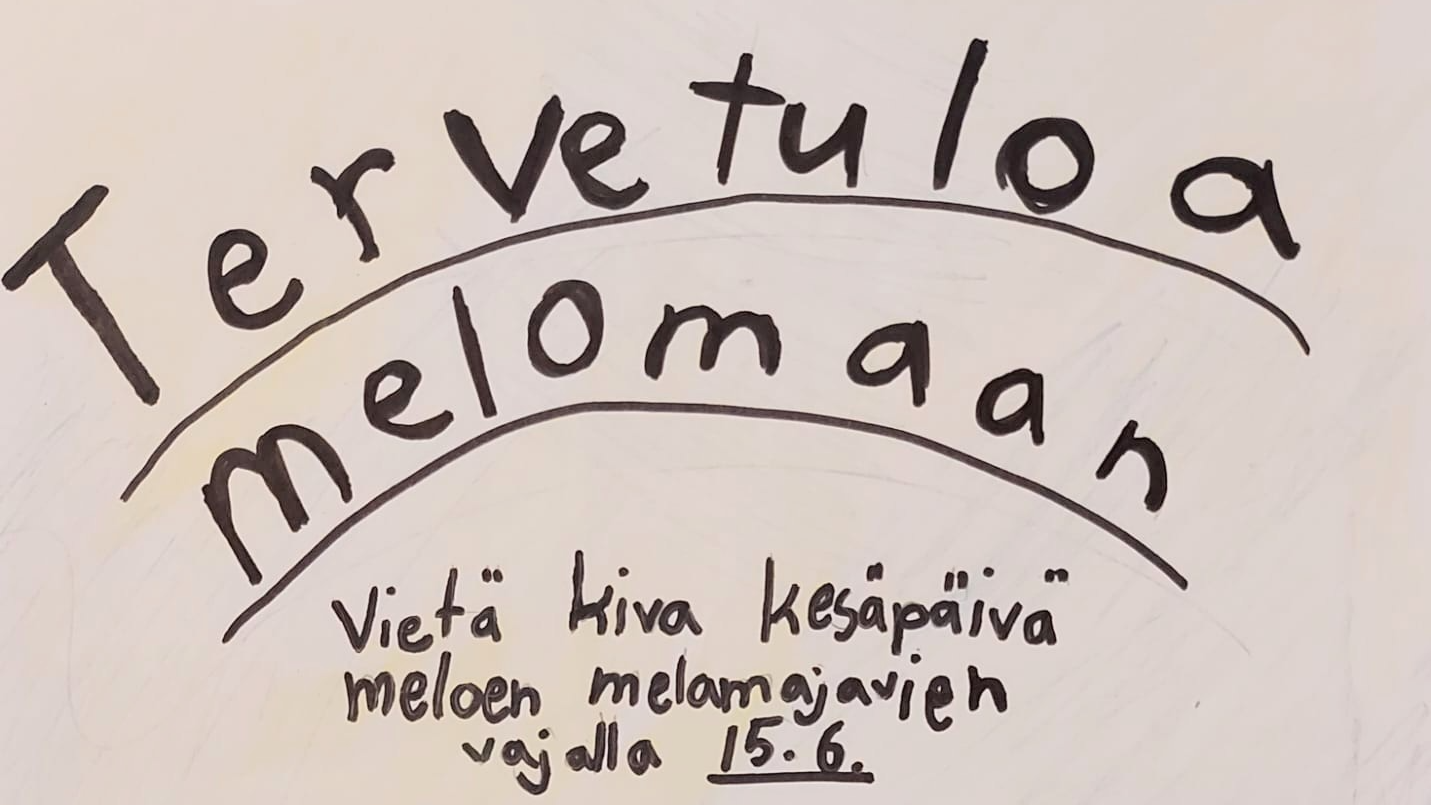 Tervetuloa
melomaan
Vietä kiva kesäpäivä
meloen melamajavien
vajalla 15.6.